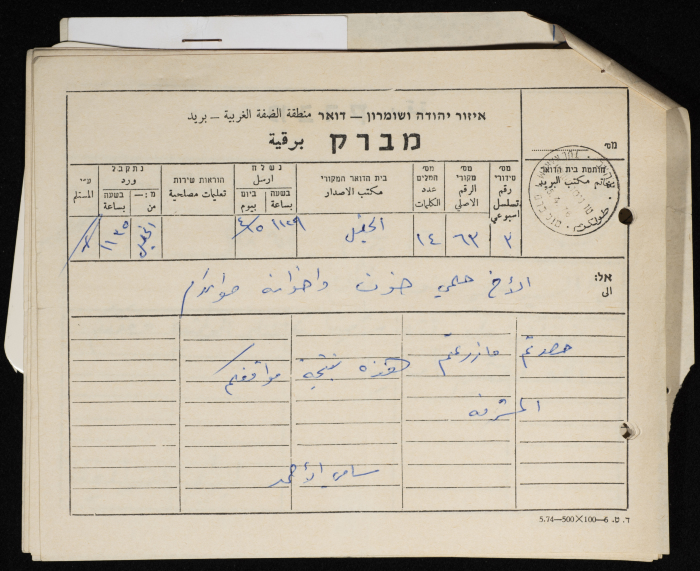 איזור יהודה ושומרון — דואר منطقة الضفة الغربية — بريد
מברק برقية
מס׳
חותמת בית הדואר
خاتم مكتب البريد
طولكرم
מס׳ סידורי رقم تسلسل اسبوعي
מס׳ מקורי الرقم الاصلي
מס׳ המלים عدد الكلمات
בית הדואר המקורי مكتب الاصدار
נשלח ارسل
בשעה بساعة
ביום بيوم
הוראות שירות تعليمات مصلحية
נתקבל ورد
מ:— من
בשעה بساعة
ע״י المستلم
٣ ٦٣ ١٤ الخليل ١١٢٥ ٤/١٥ الخليل ١١٣٥
אל:
الى
الأخ حلمي حنون واخوانه طولكرم
حصدتم ما زرعتم هذه نتيجة مواقفكم
المشرفة
سامي الأحمد
ד. ט. 6—100×500—5.74